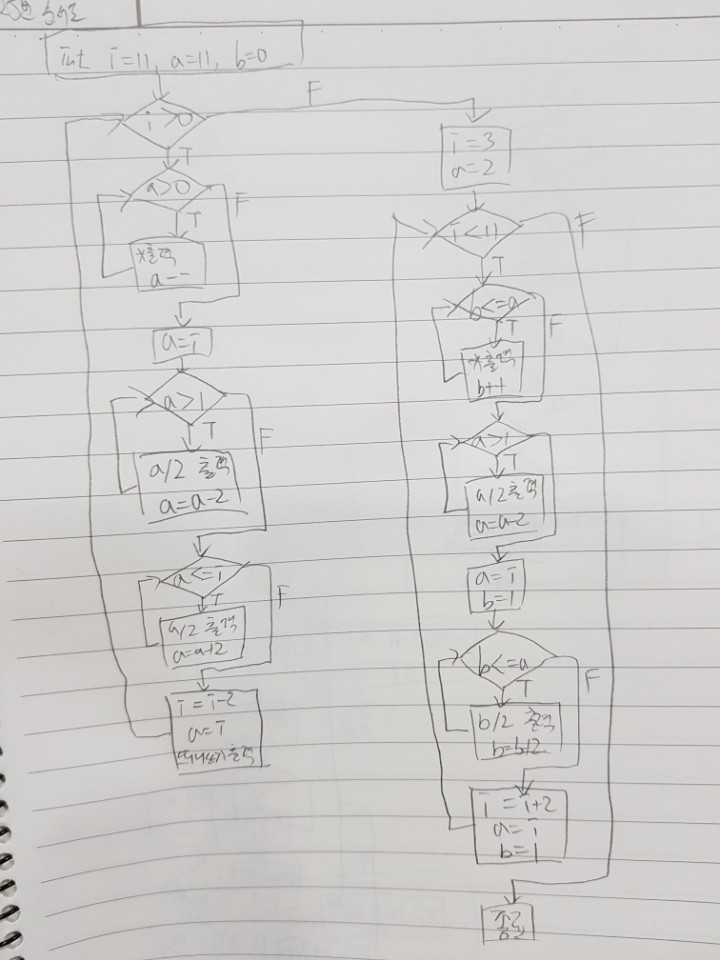 25번 순서도
int i=11, a=11, b=0
i>0
F
T
a>0
F
T
*출력
a--
a=i
a>1
F
T
a/2 출력
a=a-2
a<=i
F
T
a/2 출력
a=a+2
i=i-2
a=i
출력
i=3
a=2
i<11
F
T
b<=a
F
T
*출력
b++
a>1
T
a/2 출력
a=a-2
a=i
b=1
b<=a
F
T
b/2 출력
b=b+2
i=i+2
a=i
b=1
종료